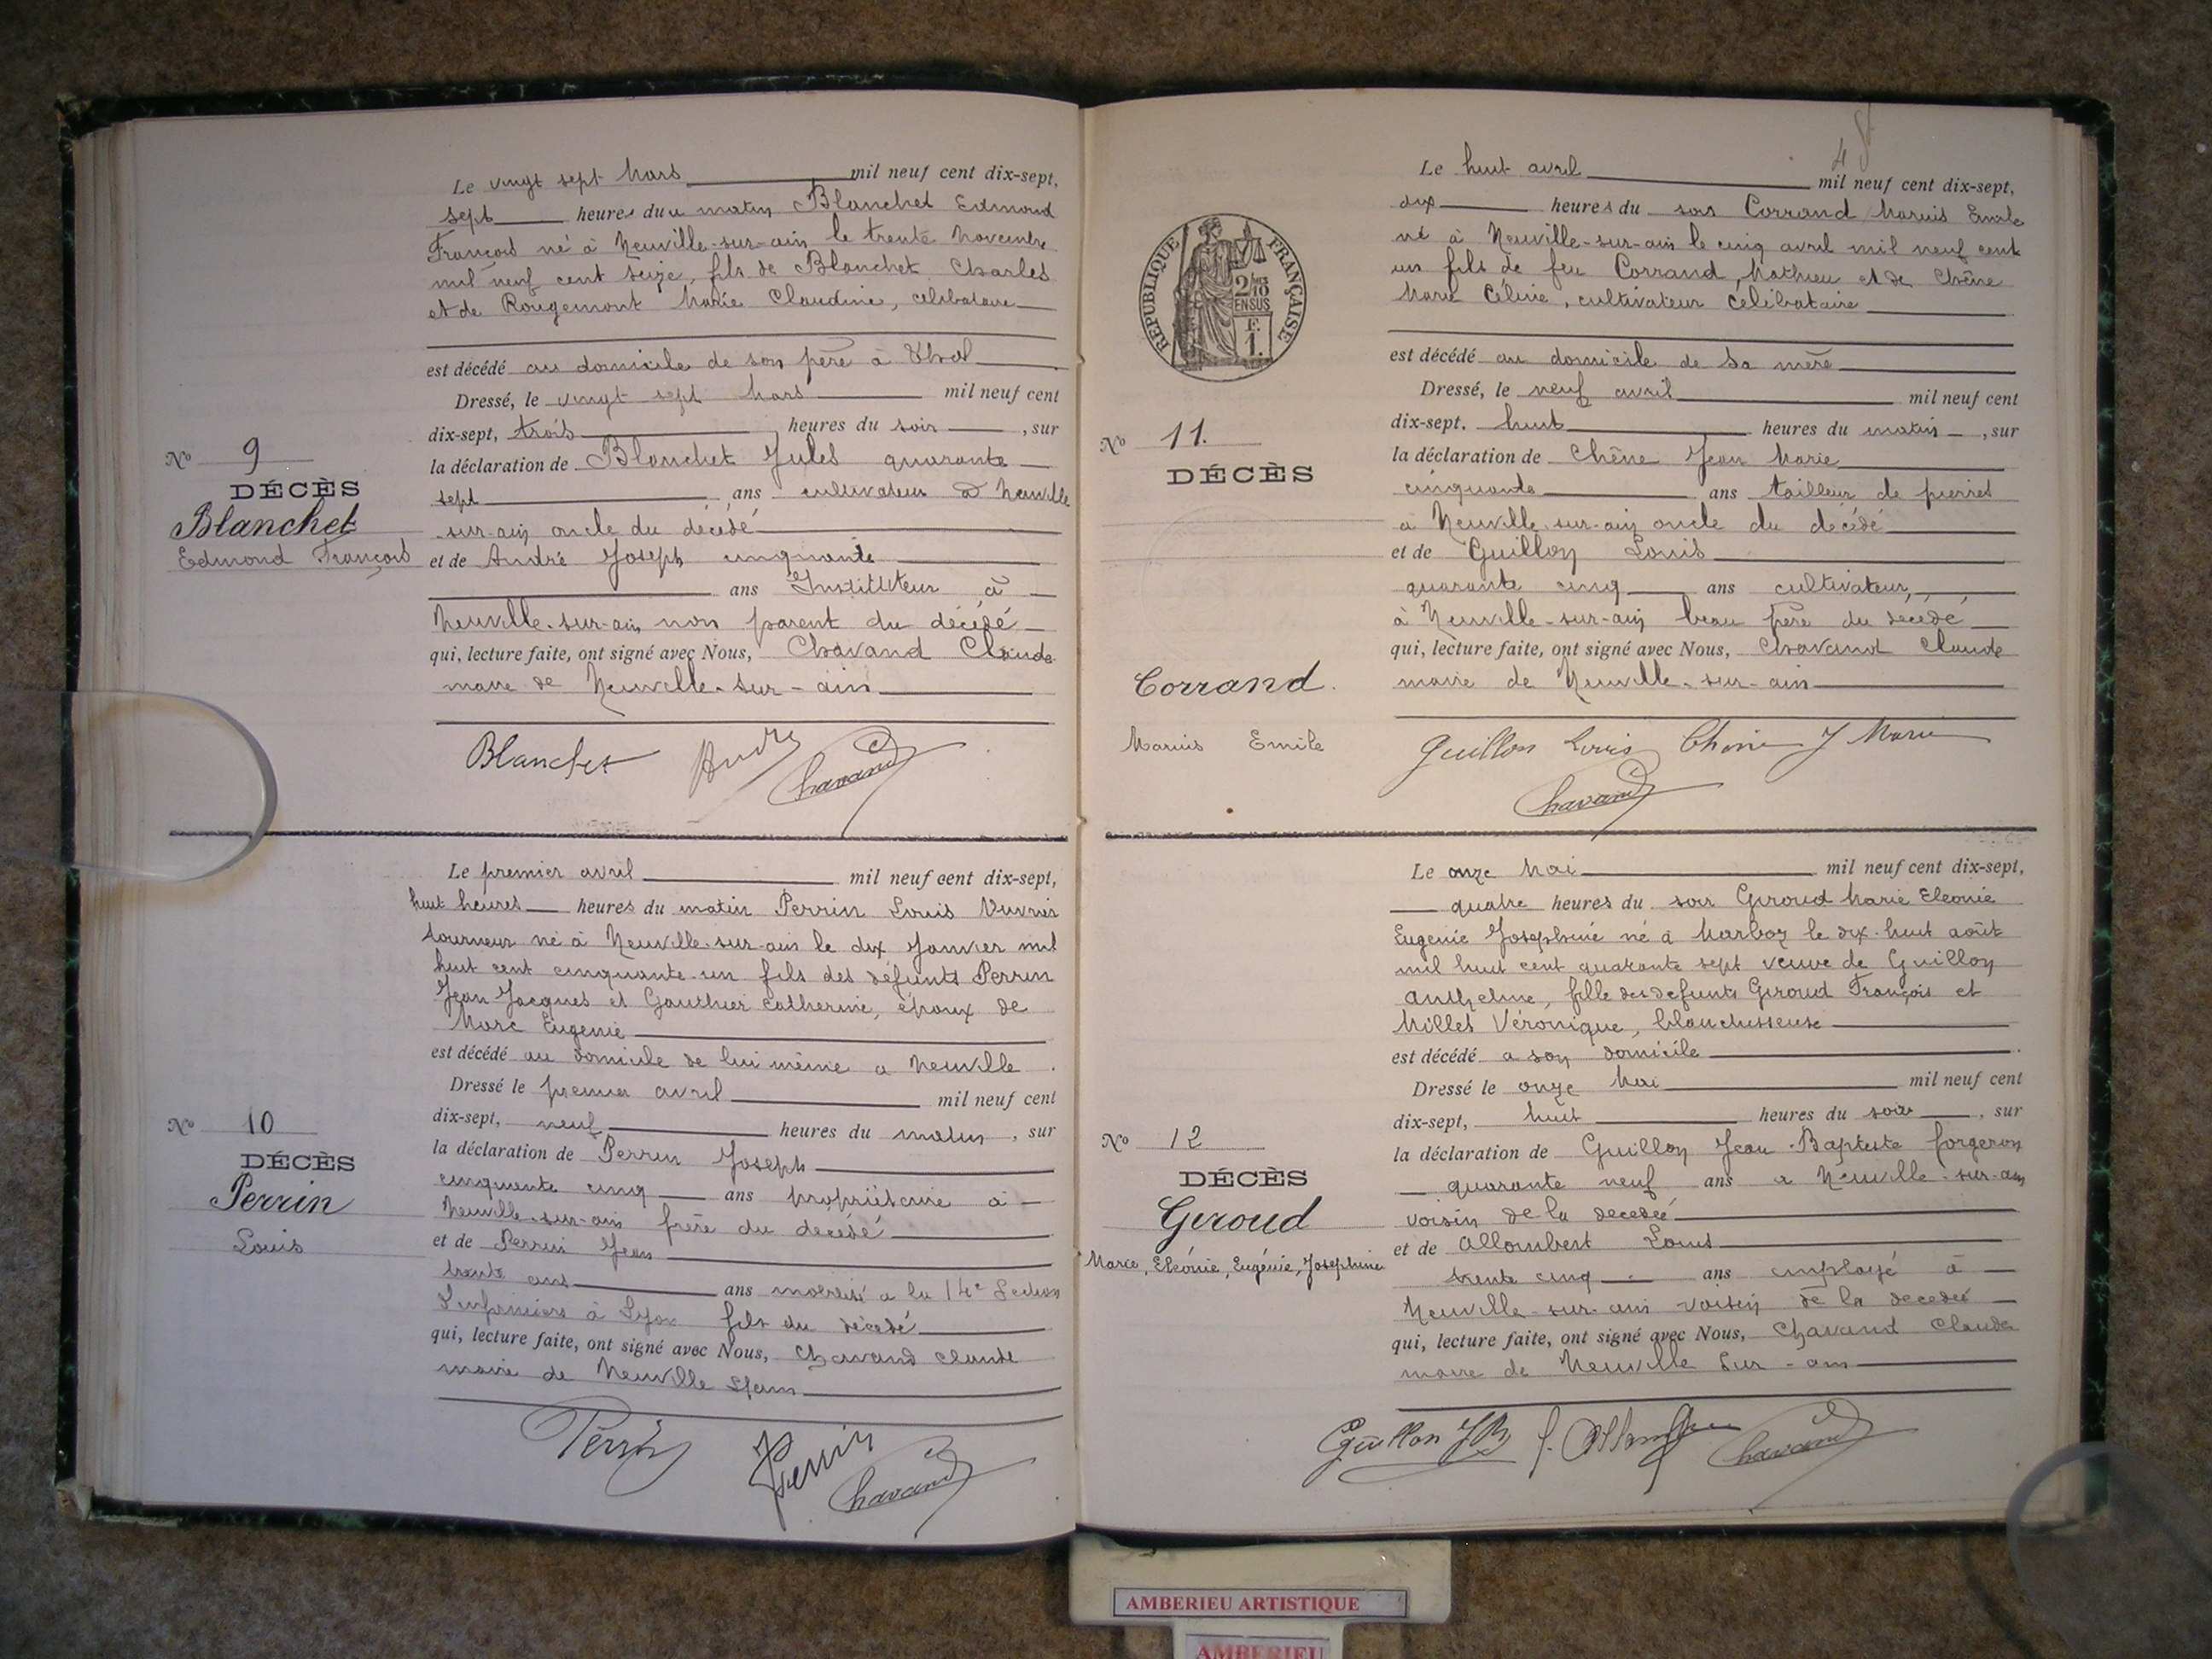 Le vingt sept Mars mil neuf cent dix-sept,
sept heures du matin Blanchet Edmond
François né à Neuville-sur-ain le trente Novembre
mil neuf cent seize, fils de Blanchet Charles
et de Rougemont Marie Claudine, célibataire
est décédé au domicile de son père à Thol
Dressé, le vingt sept Mars mil neuf cent
dix-sept, trois heures du soir, sur
la déclaration de Blanchet Jules quarante
sept ans cultivateur à Neuville
sur-ain oncle du décédé
et de André Joseph cinquante
ans Instituteur à
Neuville-sur-ain non parent du décédé
qui, lecture faite, ont signé avec Nous, Chavand Claude
maire de Neuville-sur-ain
Nº 9
DÉCÈS
Blanchet
Edmond François
Blanchet André Chavand
Le premier avril mil neuf cent dix-sept,
huit heures heures du matin Perrin Louis
tourneur né à Neuville-sur-ain le dix Janvier mil
huit cent cinquante-un fils des défunts Perrin
Jean Jacques et Gauthier Catherine, époux de
Marc Eugenie
est décédé au domicile de lui même a Neuville
Dressé le premier avril mil neuf cent
dix-sept, neuf heures du matin, sur
la déclaration de Perrin Joseph
cinquante cinq ans propriétaire à
Neuville-sur-ain frère du décédé
et de Perrin Jean
trente ans ans mobilisé a la 14e Section
d'infirmiers à Lyon fils du décédé
qui, lecture faite, ont signé avec Nous, Chavand Claude
maire de Neuville s/ain
Nº 10
DÉCÈS
Perrin
Louis
Perrin Perrin Chavand
48
Le huit avril mil neuf cent dix-sept,
dix heures du soir Corrand Marius Emile
né à Neuville-sur-ain le cinq avril mil neuf cent
un fils de feu Corrand Mathieu et de Chêne
Marie Céline, cultivateur célibataire
est décédé au domicile de sa mère
Dressé, le neuf avril mil neuf cent
dix-sept. huit heures du matin, sur
la déclaration de Chêne Jean Marie
cinquante ans tailleur de pierres
à Neuville-sur-ain oncle du décédé
et de Guillon Louis
quarante cinq ans cultivateur,
à Neuville-sur-ain beau père du décédé
qui, lecture faite, ont signé avec Nous, Chavand Claude
maire de Neuville-sur-ain
RÉPUBLIQUE FRANÇAISE
2/10 EN SUS
F. 1.
Nº 11.
DÉCÈS
Corrand.
Marius Emile
Guillon Louis Chêne J Marie
Chavand
Le onze Mai mil neuf cent dix-sept,
quatre heures du soir Giroud Marie Eleonie
Eugenie Josephine né à Marboz le dix-huit août
mil huit cent quarante sept veuve de Guillon
Anthelme, fille des défunts Giroud François et
Millet Véronique, blanchisseuse
est décédé a son domicile
Dressé le onze Mai mil neuf cent
dix-sept, huit heures du soir, sur
la déclaration de Guillon Jean-Baptiste forgeron
quarante neuf ans a Neuville-sur-ain
voisin de la decedeé
et de Allombert Louis
trente cinq ans employé à
Neuville-sur-ain voisin de la decedeé
qui, lecture faite, ont signé avec Nous, Chavand Claude
maire de Neuville sur-ain
Nº 12
DÉCÈS
Giroud
Marie, Eléonie, Eugénie, Josephine
Guillon JB L. Allombert Chavand
AMBERIEU ARTISTIQUE
AMBERIEU